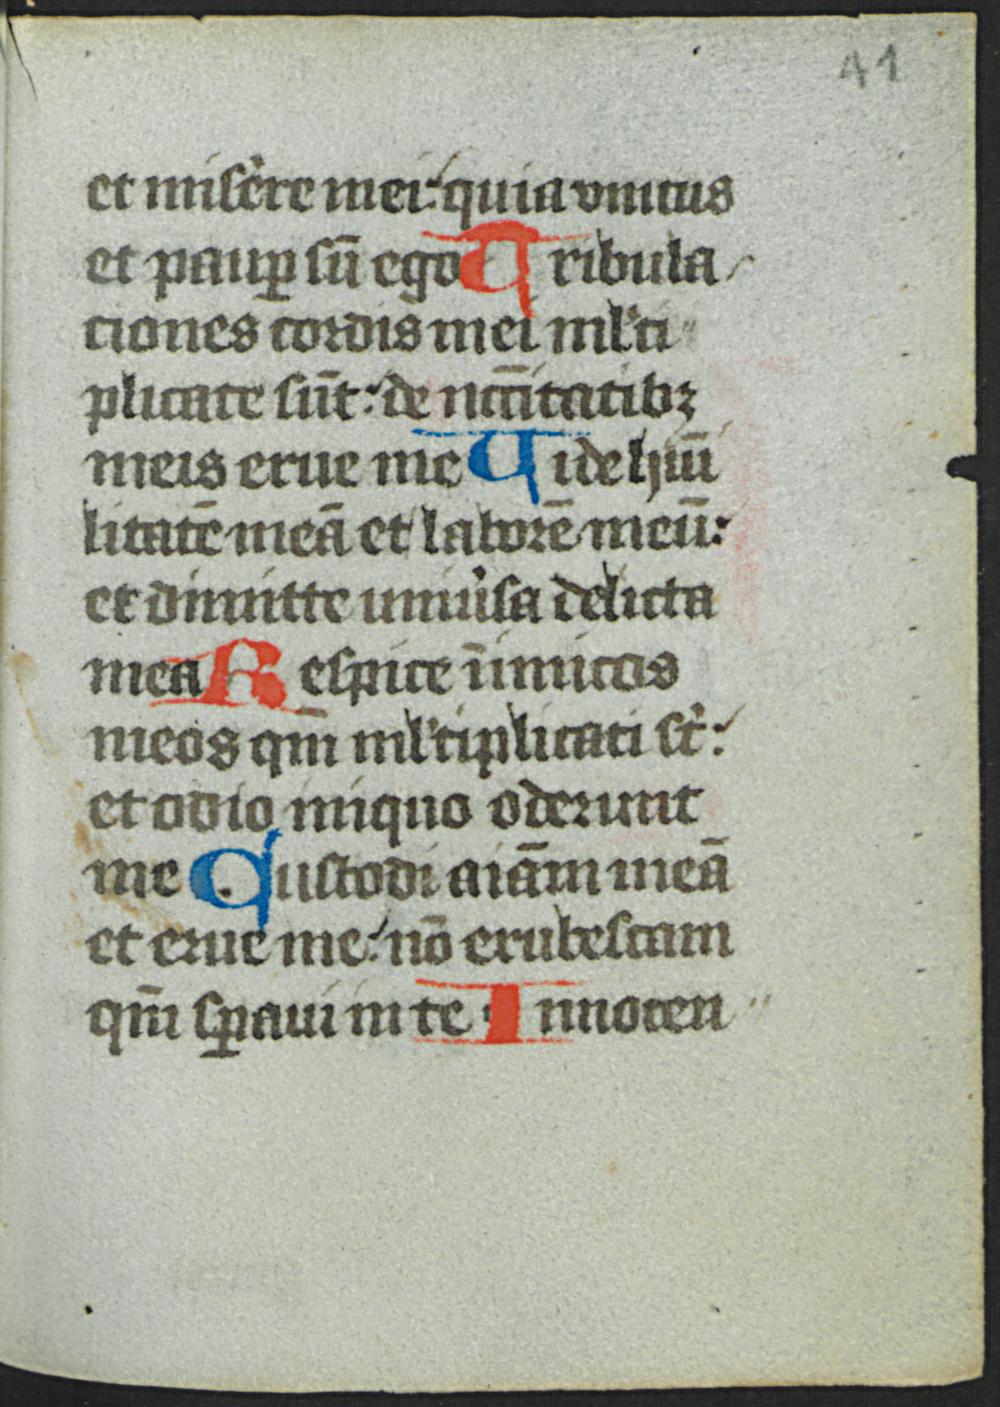 41
et miſere mei: quia vnicus
et paup̲ ſū ego Tribula
ciones cordis mei ml̓ti
plicate ſūt: de nccītatibꝫ
meis erue me Vide hūi
litatē meā et laborē meū:
et dimitte uniu̓ſa delicta
mea Reſpice īnimicos
meos qm̄ ml̓tiplicati ſt̓:
et odio iniquo oderunt
me Cuſtodi aīam meā
et erue me: nō erubeſcam
qm̄ ſꝑaui in te Innocen